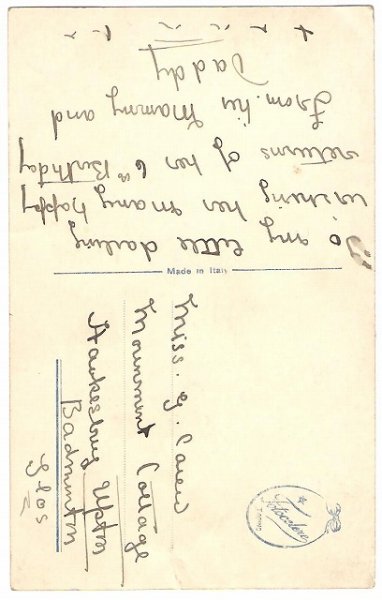 To my little darling
wishing her many happy
returns of her 6th Birthday
From her Mammy and
Daddy
Made in Italy
Miss. G. Carew
Monument Cottage
Hawkesbury Upton
Badminton
Glos
Fotocelere